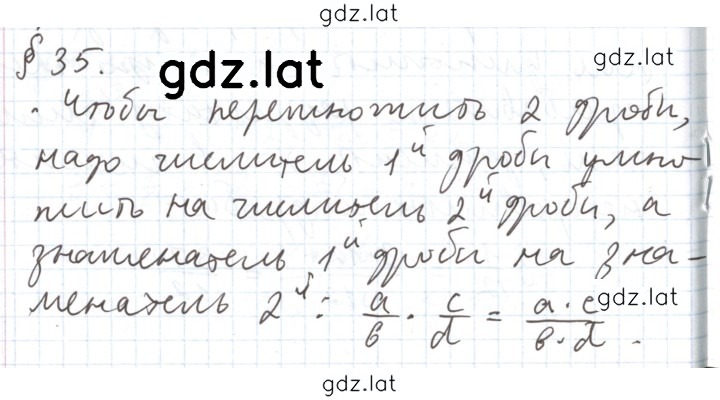 gdz.lat
§ 35.
gdz.lat
gdz.lat
. Чтобы перемножить 2 дроби,
надо числитель 1й дроби умно-
жить на числитель 2й дроби, а
знаменатель 1й дроби на зна-
менатель 2й: a/b · c/d = a·c/b·d .
gdz.lat
gdz.lat